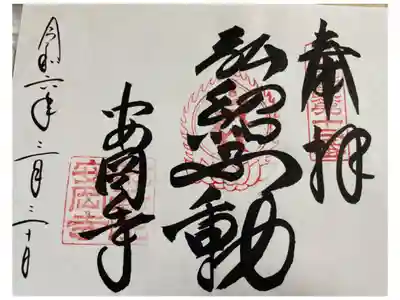 奉拝
弘紹不動
安国寺
令和六年三月三十日
安国寺